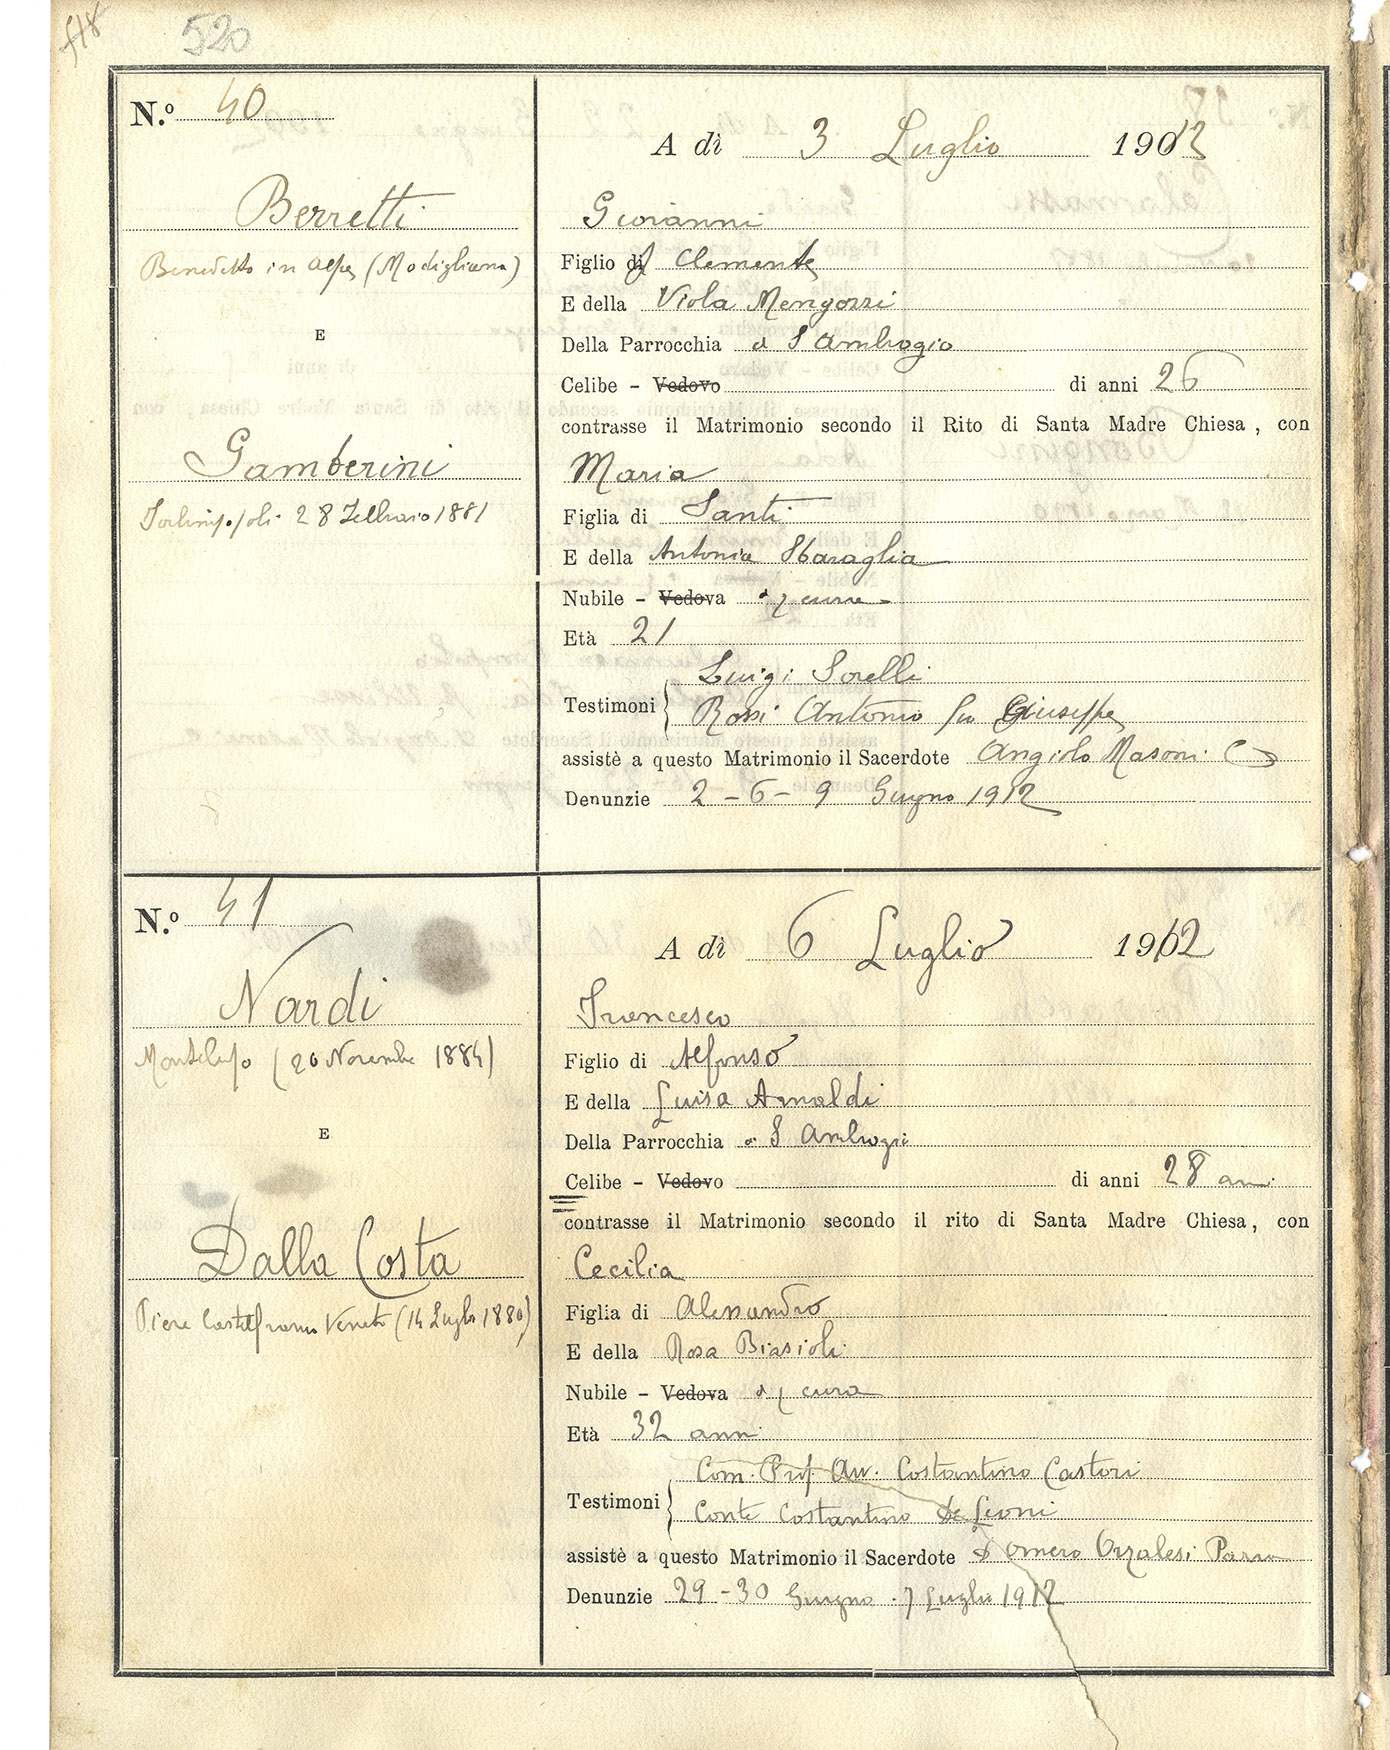 520
N.º 40
A dì 3 Luglio 1912
Berretti
Giovanni
Benedetto in Alpe (Modigliana)
Figlio di Clemente
E della Viola Mengozzi
E
Della Parrocchia di S Ambrogio
Celibe - Vedovo di anni 26
contrasse il Matrimonio secondo il Rito di Santa Madre Chiesa, con
Gamberini
Maria
Forlimpopoli 28 Febbraio 1881
Figlia di Santi
E della Antonia Sbaraglia
Nubile - Vedova di q cura
Età 21
Luigi Sorelli
Testimoni
Rossi Antonio fu Giuseppe
assistè a questo Matrimonio il Sacerdote Angiolo Masoni C
Denunzie 2 - 6 - 9 Giugno 1912
N.º 41
A dì 6 Luglio 1912
Nardi
Francesco
Montelupo (20 Novembre 1884)
Figlio di Alfonso
E della Luisa Arnaldi
E
Della Parrocchia di S Ambrogio
Celibe - Vedovo di anni 28 anni
contrasse il Matrimonio secondo il rito di Santa Madre Chiesa, con
Dalla Costa
Cecilia
Pieve Castelfranco Veneto (14 Luglio 1880)
Figlia di Alessandro
E della Rosa Biasioli
Nubile - Vedova di q cura
Età 32 anni
Com. Prof. Avv. Costantino Castori
Testimoni
Conte Costantino De Leoni
assistè a questo Matrimonio il Sacerdote D Omero Orzalesi Parro
Denunzie 29 - 30 Giugno . 7 Luglio 1912